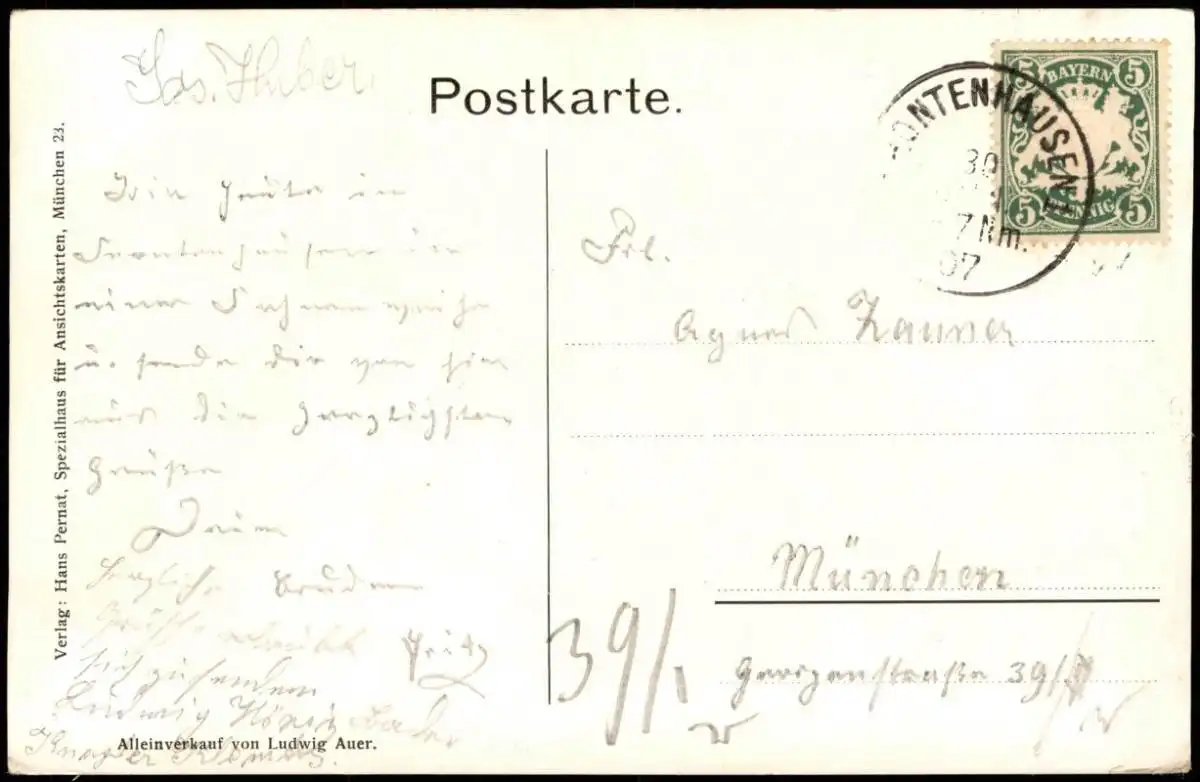 Jos. Huber
Postkarte.
BAYERN
5 5
5 PFENNIG 5
FRONTENHAUSEN
30
7 Nm.
07
Bin heute in
Frontenhausen in
einer
u. sende dir von hier
aus die herzlichsten
Grüße
Dein
Bruder
Fritz
herzliche
Grüße
sich zu senden
Ludwig König Bader
Frl.
Agnes Zauner
München
39/1
Georgenstraße 39/1
Verlag: Hans Pernat, Spezialhaus für Ansichtskarten, München 23.
Alleinverkauf von Ludwig Auer.